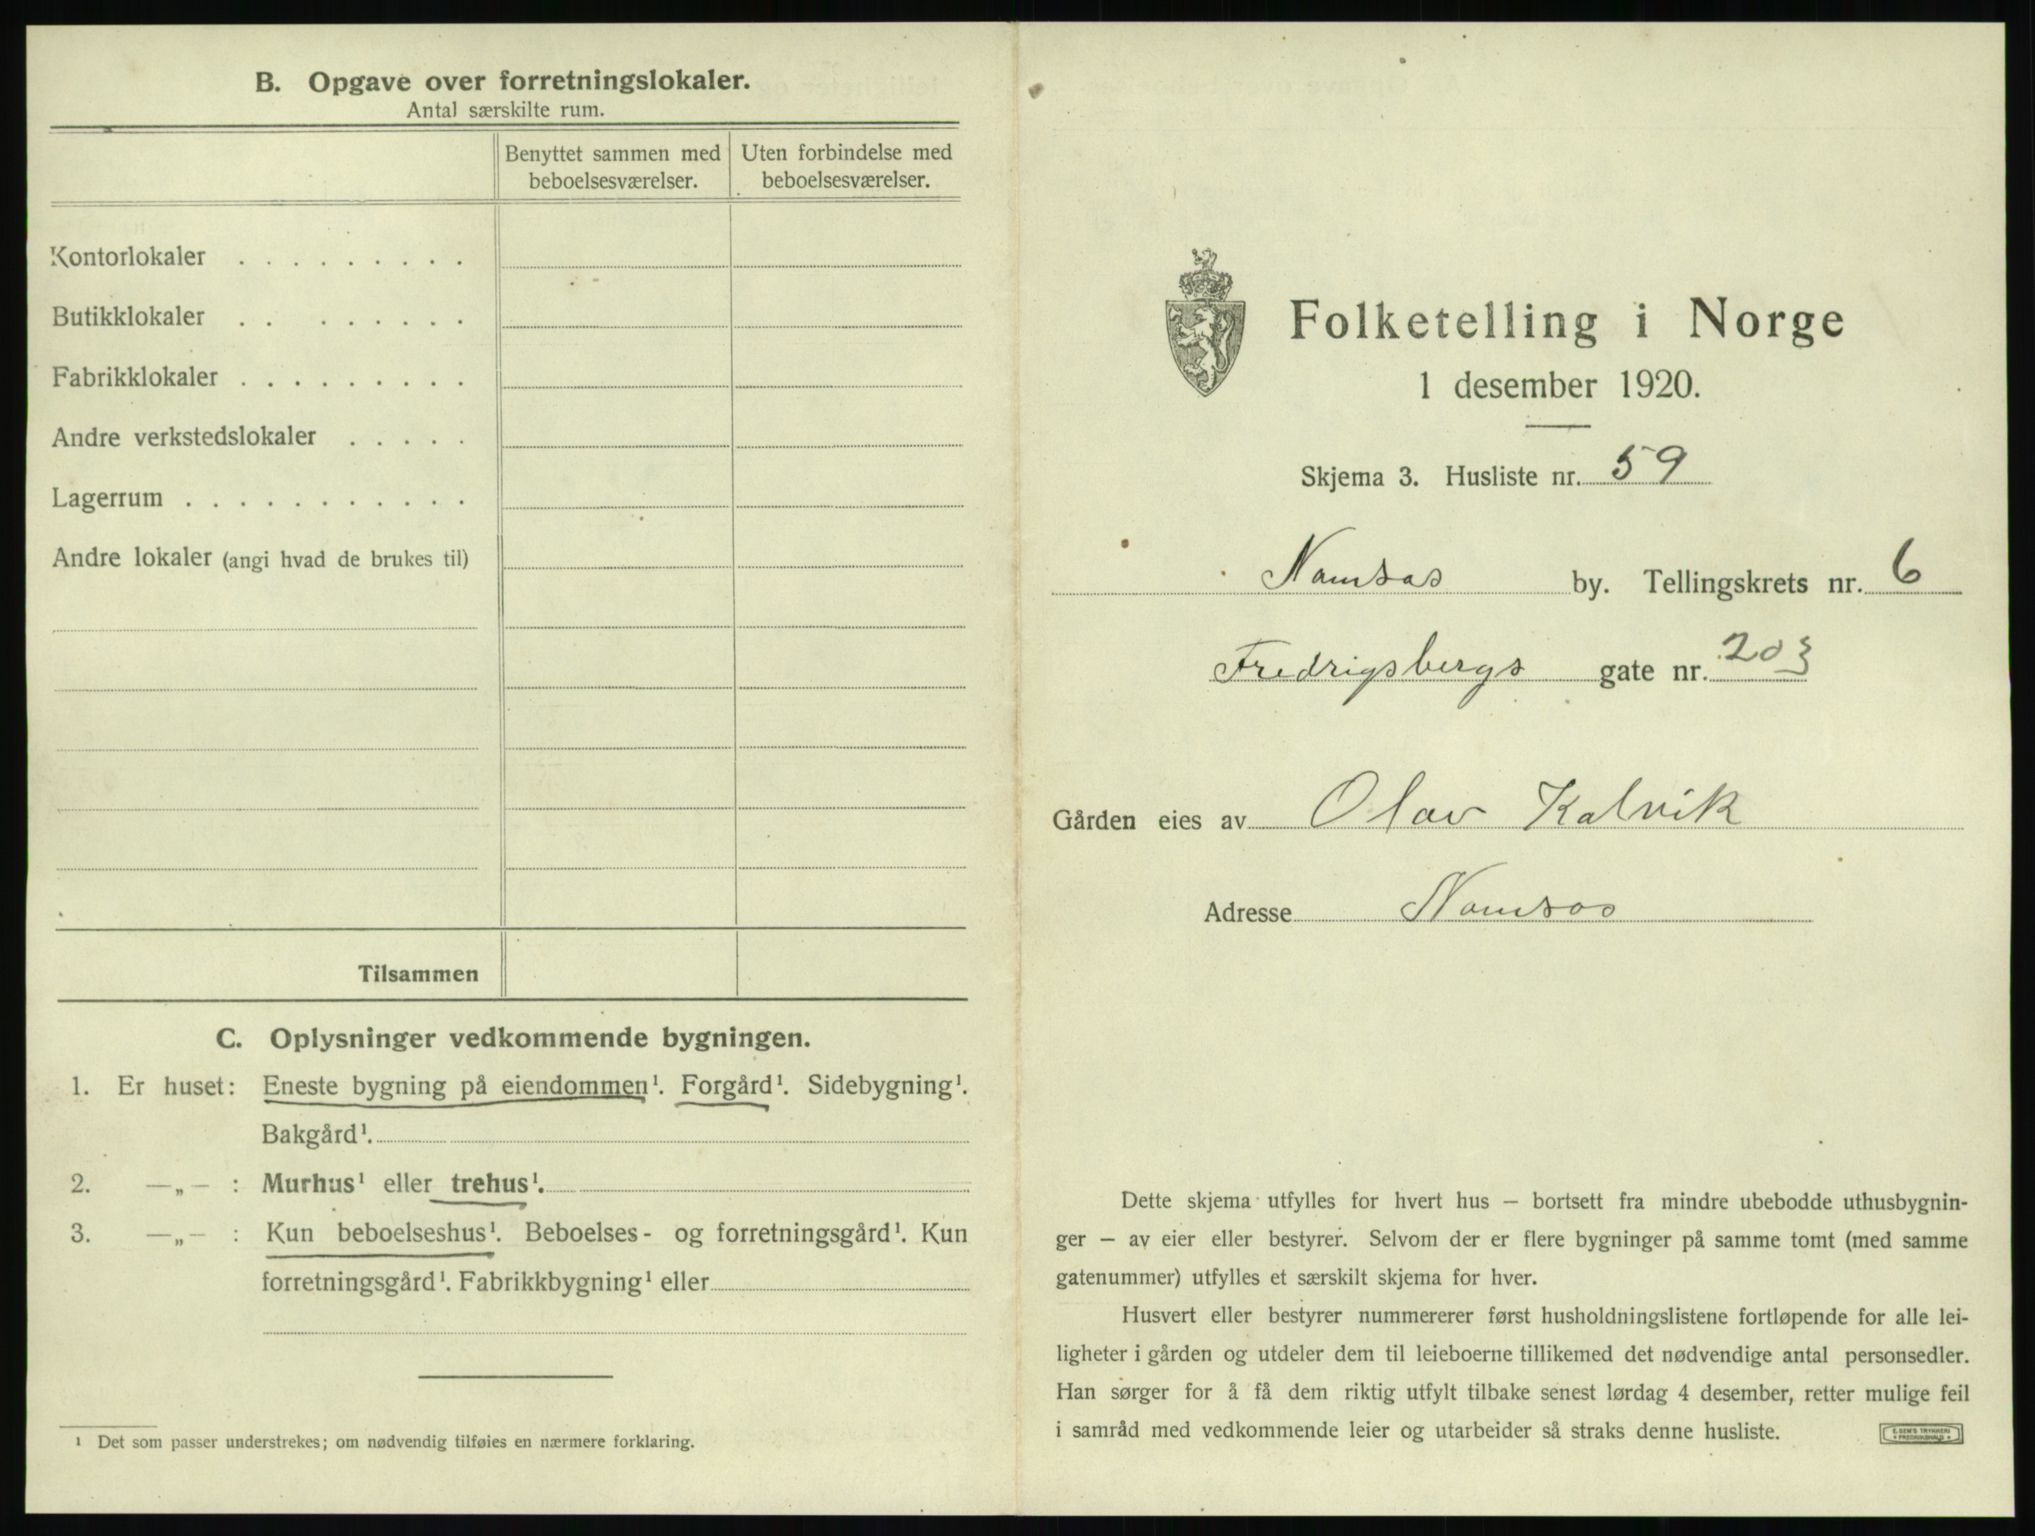 B. Opgave over forretningslokaler.
Antal særskilte rum.
Benyttet sammen med beboelsesværelser.
Uten forbindelse med beboelsesværelser.
Kontorlokaler . . . . . . . . .
Butikklokaler . . . . . . . .
Fabrikklokaler . . . . . . . . .
Andre verkstedslokaler . . . . .
Lagerrum . . . . . . . . . . .
Andre lokaler (angi hvad de brukes til)
Tilsammen
C. Oplysninger vedkommende bygningen.
1. Er huset: Eneste bygning på eiendommen¹. Forgård¹. Sidebygning¹.
Bakgård¹.
2. —„— : Murhus¹ eller trehus¹.
3. —„— : Kun beboelseshus¹. Beboelses- og forretningsgård¹. Kun
forretningsgård¹. Fabrikkbygning¹ eller
¹ Det som passer understrekes; om nødvendig tilføies en nærmere forklaring.
Folketelling i Norge
1 desember 1920.
Skjema 3. Husliste nr. 59
Namsos by. Tellingskrets nr. 6
Fredrigsbergs gate nr. 203
Gården eies av Olav Kalvik
Adresse Namsos
Dette skjema utfylles for hvert hus – bortsett fra mindre ubebodde uthusbygnin-
ger – av eier eller bestyrer. Selvom der er flere bygninger på samme tomt (med samme
gatenummer) utfylles et særskilt skjema for hver.
Husvert eller bestyrer nummererer først husholdningslistene fortløpende for alle lei-
ligheter i gården og utdeler dem til leieboerne tillikemed det nødvendige antal personsedler.
Han sørger for å få dem riktig utfylt tilbake senest lørdag 4 desember, retter mulige feil
i samråd med vedkommende leier og utarbeider så straks denne husliste.
E. SEM'S TRYKKERI
FREDRIKSHALD